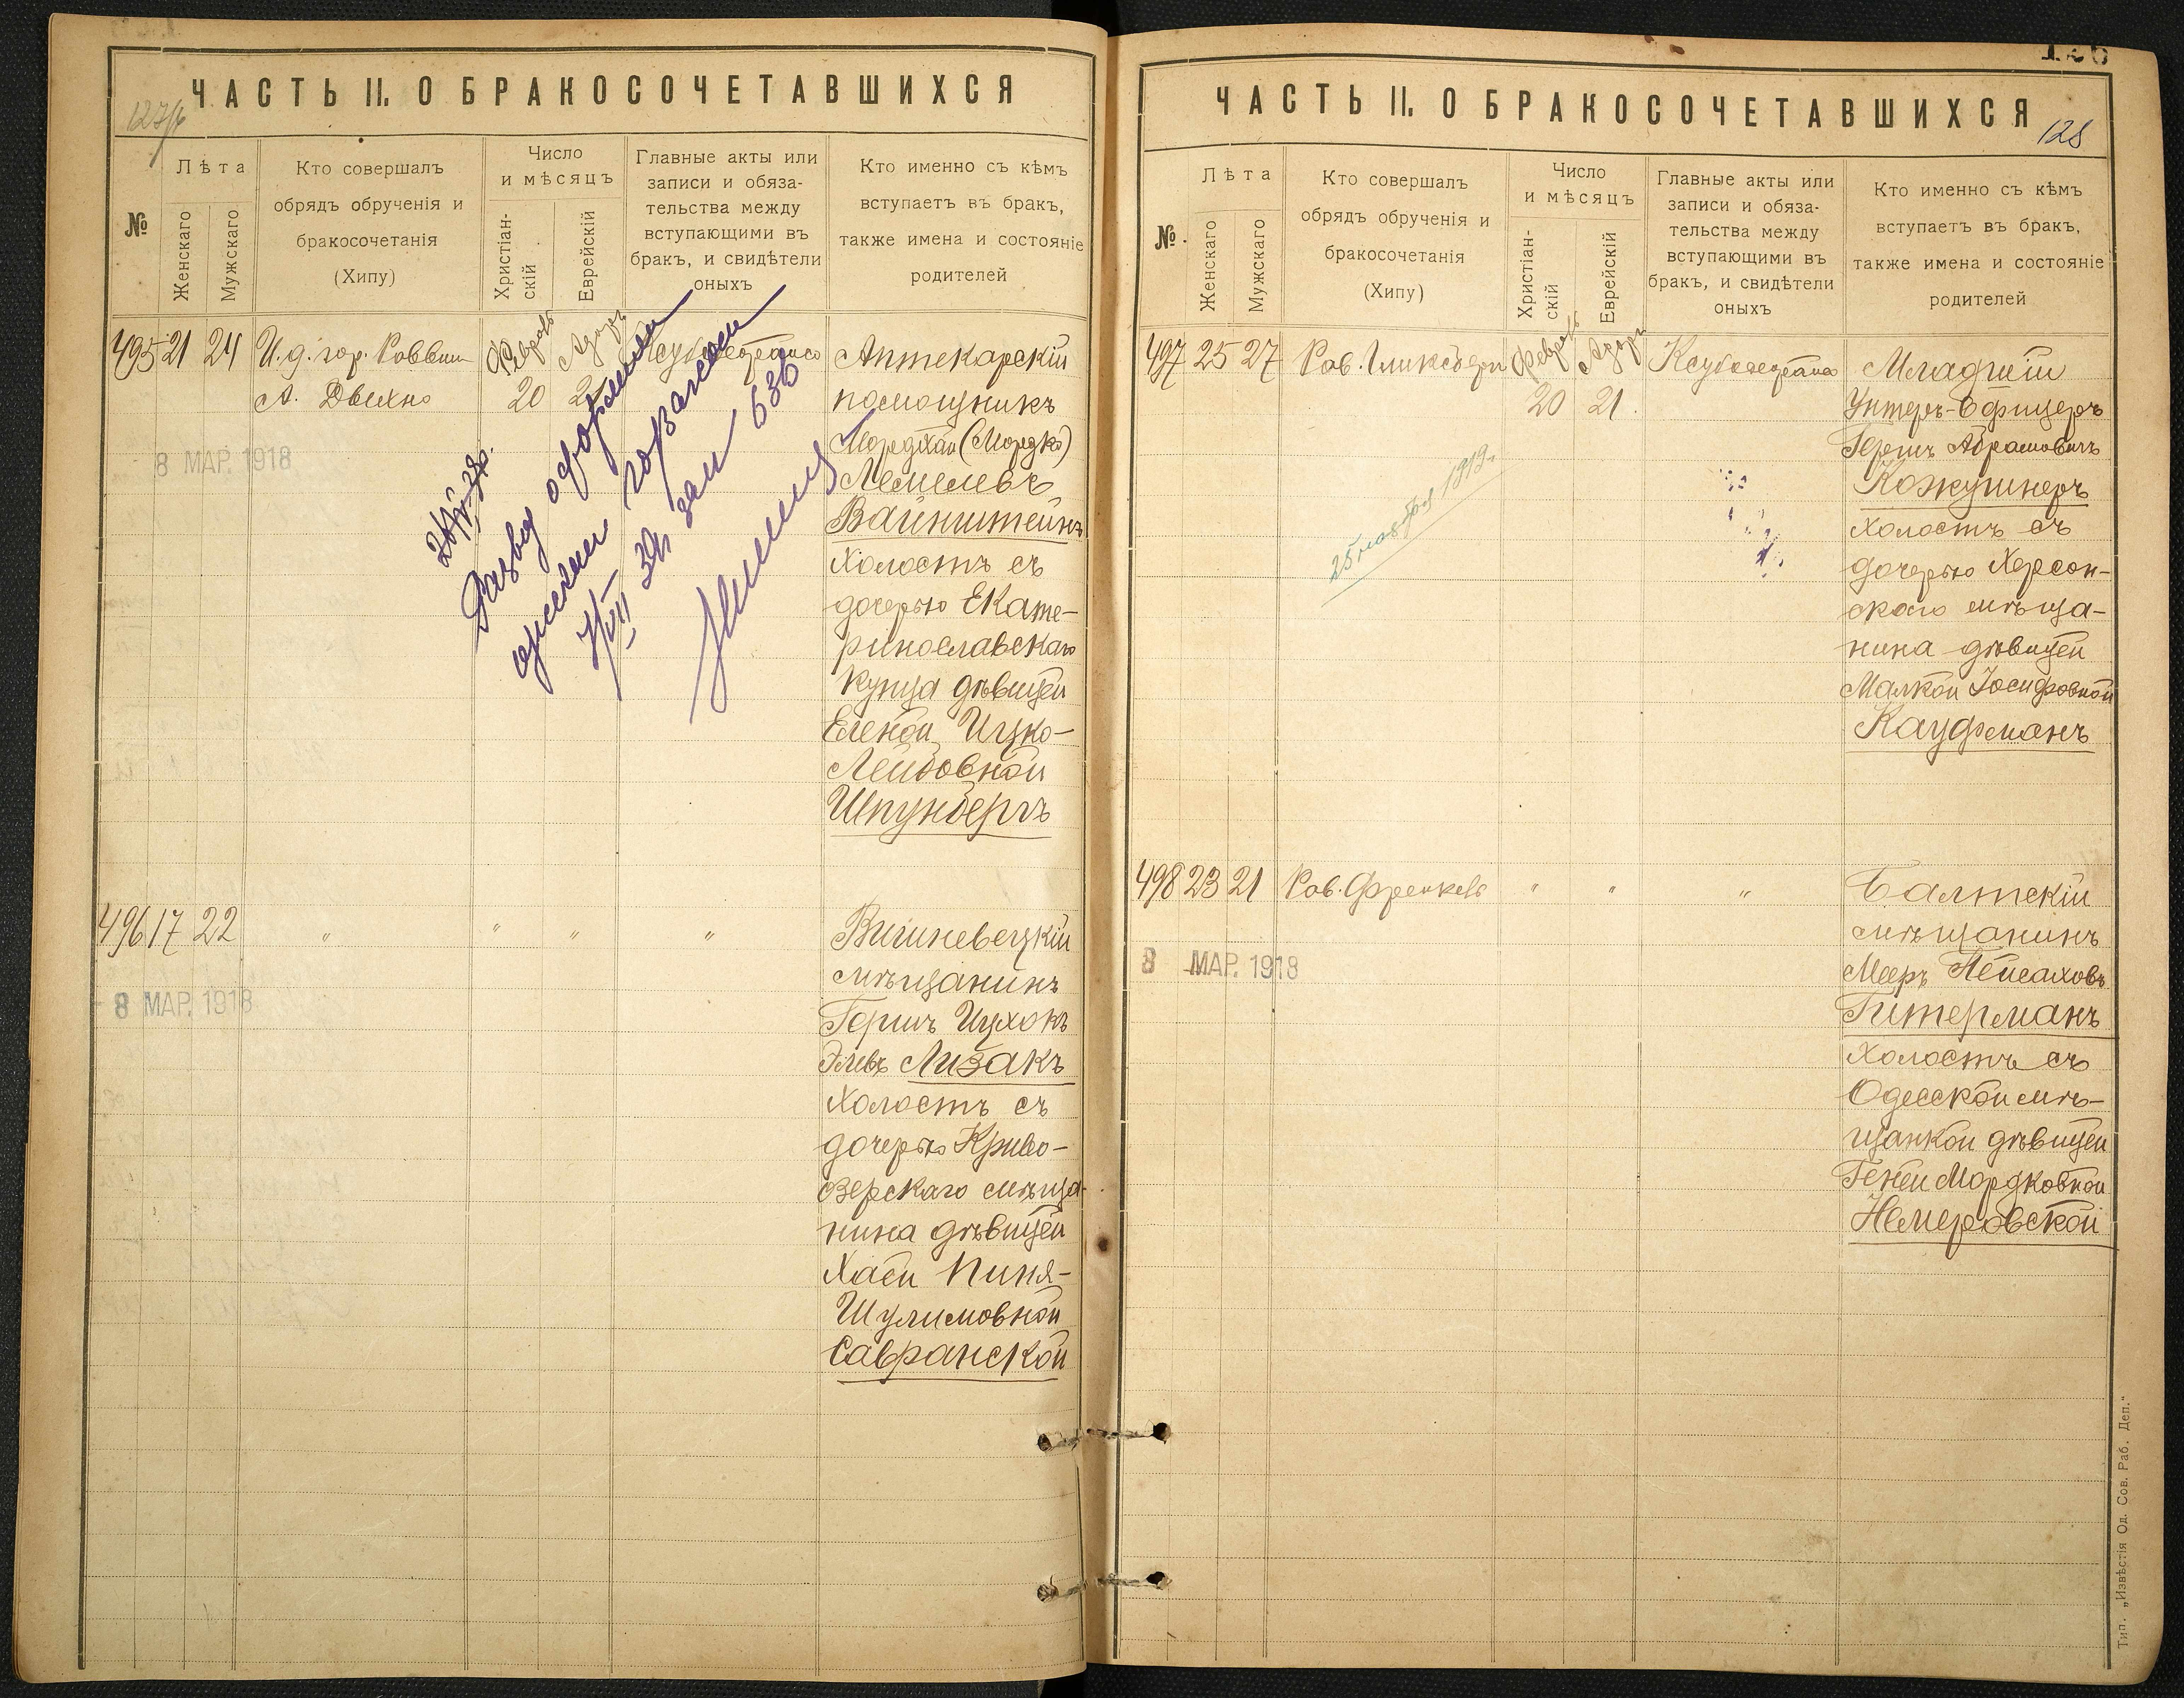 ЧАСТЬ II. О БРАКОСОЧЕТАВШИХСЯ
№
Лѣта
Женскаго
Мужскаго
Кто совершалъ
обрядъ обрученія и
бракосочетанія
(Хипу)
Число
и мѣсяцъ
Христіан-
скій
Еврейскій
Главные акты или
записи и обяза-
тельства между
вступающими въ
бракъ, и свидѣтели
оныхъ
Кто именно съ кѣмъ
вступаетъ въ бракъ,
также имена и состояніе
родителей
495 21 24
И. д. гор. Раввин
А.
Февраль
20
8 МАР. 1918
Развод оформлен
одесским
зам 636
Аптекарскій
помощникъ
Мордхай (Мордко)
Лемелевъ
Вайнштейнъ
холостъ съ
дочерью Екате-
ринославскаго
купца дѣвицей
Еленой Ицко-
Лейбовной
Шпунбергъ
496 17 22
" " " "
8 МАР. 1918
Вишневецкій
мѣщанинъ
Гершъ Ицхокъ
Лизакъ
холостъ съ
дочерью Криво-
зерскаго мѣща-
нина дѣвицей
Хаей Пиня-
Шулимовной
Савранской
ЧАСТЬ II. О БРАКОСОЧЕТАВШИХСЯ
128
№
Лѣта
Женскаго
Мужскаго
Кто совершалъ
обрядъ обрученія и
бракосочетанія
(Хипу)
Число
и мѣсяцъ
Христіан-
скій
Еврейскій
Главные акты или
записи и обяза-
тельства между
вступающими въ
бракъ, и свидѣтели
оныхъ
Кто именно съ кѣмъ
вступаетъ въ бракъ,
также имена и состояніе
родителей
497 25 27
Рав. Гликсберг
Февраль
20
21
Младшій
Унтеръ-Офицеръ
Гершъ Абрамовичъ
Кожушнеръ
холостъ съ
дочерью Херсон-
скаго мѣща-
нина дѣвицей
Малкой Іосифовной
Кауфманъ
498 23 21
Рав. Френкель
" " "
8 МАР. 1918
Балтскій
мѣщанинъ
Мееръ Пейсаховъ
Гитерманъ
холостъ съ
Одесской мѣ-
щанкой дѣвицей
Геней Мордковной
Немеровской
Тип. „Извѣстія Од. Сов. Раб. Деп."